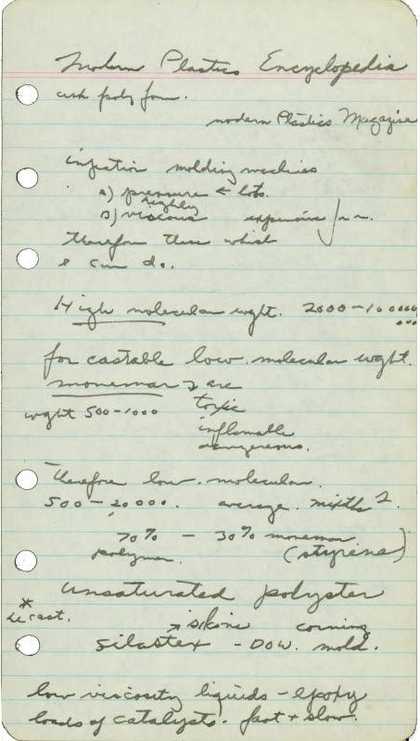 Modern Plastics Encyclopedia
ask poly form.
modern Plastics Magazine
injection molding machines
a) pressure ← lots.
highly
b) viscous expensive
therefore those which
I can do.
High molecular wght. 2000-100000
000
for castable low. molecular wght.
monemar are
wght 500-1000 toxic
inflamable
dangereous.
Therefore low. molecular.
500-20000. average.
70% - 30% monemar
polymer. (styrene)
unsaturated polyster
* cast.
silicone corning
silastex - DOW. mold.
low viscosity liquids - epoxy
loads of catalysts. fast + slow.